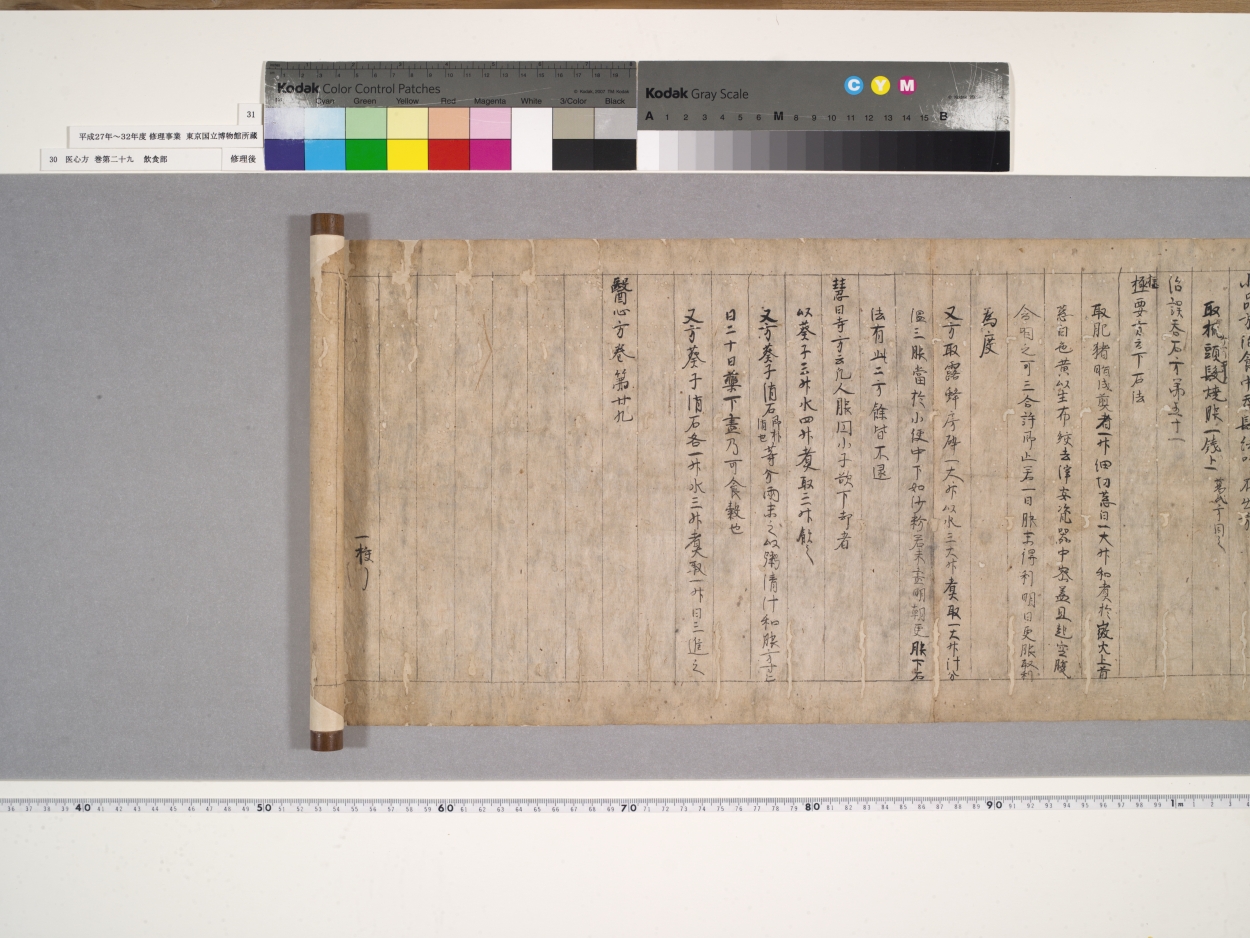 Kodak Color Control Patches
Cyan Green Yellow Red Magenta White 3/Color Black
Kodak Gray Scale
C Y M
A 1 2 3 4 5 6 M 8 9 10 11 12 13 14 15 B
31
平成27年～32年度 修理事業 東京国立博物館所蔵
30 医心方 巻第二十九 飲食部 修理後
治誤呑石方第五十一
極要方云下石法
取肥猪脂成煎者一升細切葱白一大升和煮於微火上
葱白色黄以生布絞去滓安瓷器中密蓋且起空腹
含咽之可三合許而止若一日服未得利明日更服取利
為度
又方取露蜂房碎一大升以水三大升煮取一大升汁分
温三服當於小便中下如沙粉若未盡明朝更服下石
法有此二方餘皆不逮
慧日寺方云凡人服因小子欲下却者
以葵子三升水四升煮取二升飲之
又方葵子消石等分兩末之以粥清汁和服方寸匕
日二十日藥下盡乃可食穀也
又方葵子消石各一升水三升煮取一升日三進之
醫心方巻第廿九
一校了
40 50 60 70 80 90 1m